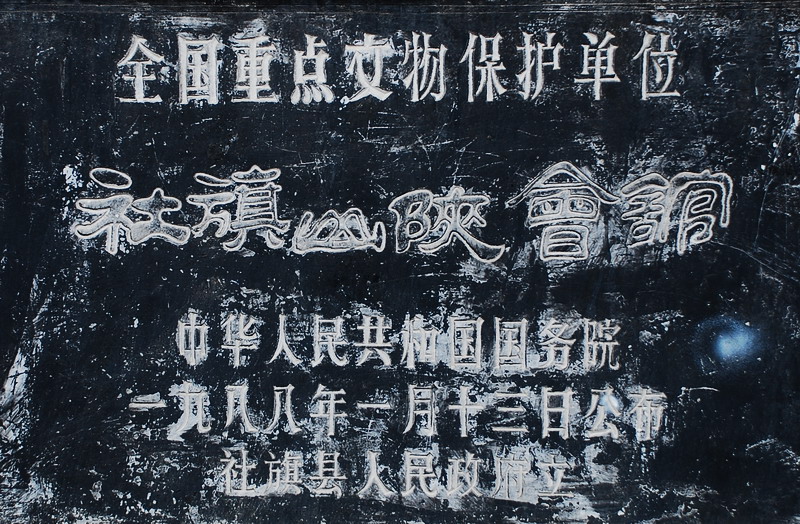 全国重点文物保护单位
社旗山陕會館
中华人民共和国国务院
一九八八年一月十三日公布
社旗县人民政府立